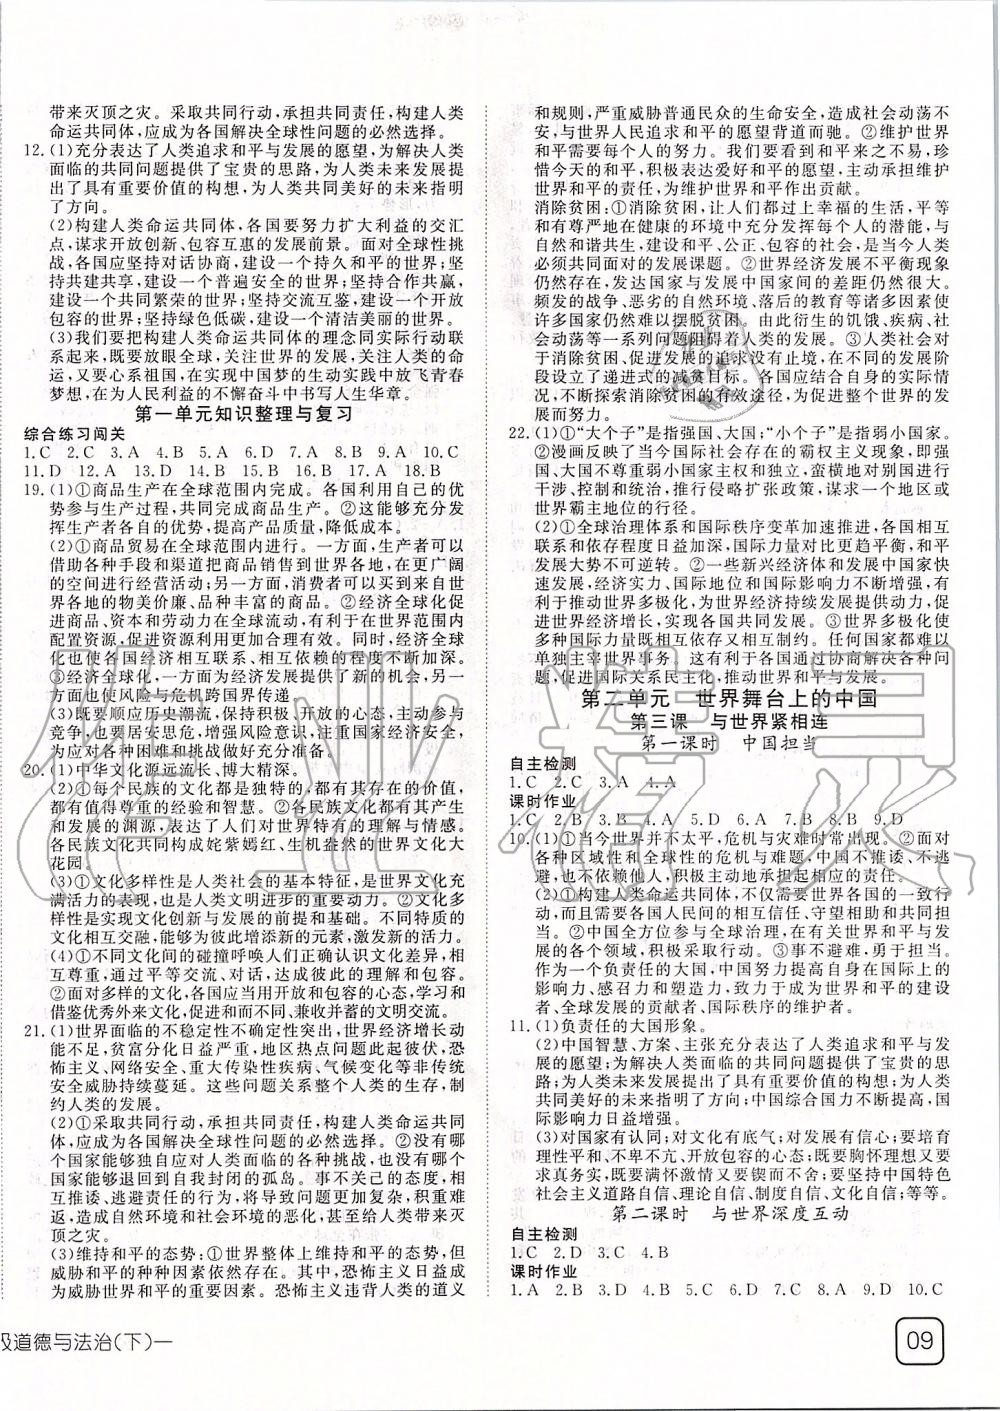 带来灭顶之灾。采取共同行动,承担共同责任,构建人类
命运共同体,应成为各国解决全球性问题的必然选择。
12.(1)充分表达了人类追求和平与发展的愿望,为解决人类
面临的共同问题提供了宝贵的思路,为人类未来发展提
出了具有重要价值的构想,为人类共同美好的未来指明
了方向。
(2)构建人类命运共同体,各国要努力扩大利益的交汇
点,谋求开放创新、包容互惠的发展前景。面对全球性挑
战,各国应坚持对话协商,建设一个持久和平的世界;坚
持共建共享,建设一个普遍安全的世界;坚持合作共赢,
建设一个共同繁荣的世界;坚持交流互鉴,建设一个开放
包容的世界;坚持绿色低碳,建设一个清洁美丽的世界。
(3)我们要把构建人类命运共同体的理念同实际行动联
系起来,既要放眼全球,关注世界的发展,关注人类的命
运,又要心系祖国,在实现中国梦的生动实践中放飞青春
梦想,在为人民利益的不懈奋斗中书写人生华章。
第一单元知识整理与复习
综合练习闯关
1.C 2.C 3.A 4.B 5.A 6.D 7.A 8.B 9.A 10.C
11.D 12.A 13.D 14.B 15.B 16.A 17.A 18.B
19.(1)①商品生产在全球范围内完成。各国利用自己的优
势参与生产过程,共同完成商品生产。②这能够充分发
挥生产者各自的优势,提高产品质量,降低成本。
(2)①商品贸易在全球范围内进行。一方面,生产者可以
借助各种手段和渠道把商品销售到世界各地,在更广阔
的范围内进行经营活动;另一方面,消费者可以买到来自世
界各地的物美价廉、品种丰富的商品。②经济全球化促
进商品、资本和劳动力在全球流动,有利于在世界范围内
配置资源,促进资源利用更加合理有效。同时,经济全球
化也使各国经济相互联系、相互依赖的程度不断加深。
③经济全球化,一方面为经济发展提供了新的机会,另一
方面也使风险与危机跨国界传递。
(3)既要顺应历史潮流,保持积极、开放的心态,主动参与
竞争,也要居安思危,增强风险意识,注重国家经济安全,
为应对各种困难和挑战做好充分准备。
20.(1)中华文化源远流长、博大精深。
(2)①每个民族的文化都是独特的,都有其存在的价值,
都有值得尊重的经验和智慧。②各民族文化都有其产生
和发展的渊源,表达了人们对世界特有的理解与情感。
各民族文化共同构成姹紫嫣红、生机盎然的世界文化大
花园。
(3)①文化多样性是人类社会的基本特征,是世界文化充
满活力的表现,也是人类文明进步的重要动力。②文化多
样性是实现文化创新与发展的前提和基础。不同特质的
文化相互交融,能够为彼此增添新的元素,激发新的活力。
(4)①不同文化间的碰撞呼唤人们正确认识文化差异,相
互尊重,通过平等交流、对话,达成彼此的理解和包容。
②面对多样的文化,各国应当用开放和包容的心态,学习和
借鉴优秀外来文化,促进和而不同、兼收并蓄的文明交流。
21.(1)世界面临的不稳定性不确定性突出,世界经济增长动
能不足,贫富分化日益严重,地区热点问题此起彼伏,恐
怖主义、网络安全、重大传染性疾病、气候变化等非传统
安全威胁持续蔓延。这些问题关系整个人类的生存,制
约人类的发展。
(2)①采取共同行动,承担共同责任,构建人类命运共同
体,应成为各国解决全球性问题的必然选择。②没有哪个
国家能够独自应对人类面临的各种挑战,也没有哪个国
家能够退回到自我封闭的孤岛。事不关己的态度,相
互推诿、逃避责任的行为,将导致问题更加复杂,积重难
返,造成自然环境和社会环境的恶化,给人类带来灭
顶之灾。
(3)维持和平的态势:①世界整体上维持和平的态势,但
威胁和平的种种因素依然存在。②恐怖主义日益成
为威胁世界和平的重要因素。恐怖主义违背人类的道义
和规则,严重威胁普通民众的生命安全,造成社会动荡不
安,与世界人民追求和平的愿望背道而驰。②维护世界
和平需要每个人的努力。我们要认识到和平来之不易,珍
惜今天的和平,积极表达爱好和平的意愿,主动承担维护
世界和平的责任,为维护世界和平作出贡献。
消除贫困:①消除贫困,让人们都过上幸福的生活,平等
和有尊严地在健康的环境中充分发挥每个人的潜能,与
自然和谐共生,建设和平、公正、包容的社会,是当今人类
必须共同面对的发展课题。②世界经济发展不平衡现象
仍然存在,发达国家与发展中国家间的差距仍然很大。
频发的战争、恶劣的自然环境、落后的教育等诸多因素使
许多国家仍然难以摆脱贫困。由此衍生的饥饿、疾病、社
会动荡等一系列问题阻碍着人类的发展。③人类社会对
于消除贫困、促进发展的追求没有止境,在不同的发展阶
段设立了递进式的减贫目标。各国应结合自身的实际情
况,不断探索消除贫困的有效途径,为促进整个世界的发
展作出努力。
22.(1)①“大个子”是指强国、大国;“小个子”是指弱小国家。
②漫画反映了当今国际社会存在的霸权主义现象,即强
国、大国不尊重弱小国家主权和独立,蛮横地对别国进行
干涉、控制和统治,推行侵略扩张政策,谋求一个地区或
世界霸主地位的行径。
(2)①全球治理体系和国际秩序变革加速推进,各国相互
联系和依存程度日益加深,国际力量对比更趋平衡,和平
发展大势不可逆转。②一些新兴经济体和发展中国家快
速发展,经济实力、国际地位和国际影响力不断增强,有
利于推动世界多极化,为世界经济持续发展提供动力,促
进世界经济增长,实现各国共同发展。③世界多极化使
多种国际力量既相互依存又相互制约。任何国家都难以
单独主宰世界事务。这有利于各国通过协商解决各种问
题,促进国际关系民主化,推动世界和平与发展。
第二单元 世界舞台上的中国
第三课 与世界紧相连
第一课时 中国担当
自主检测
1.C 2.C 3.A 4.A
课时作业
1.C 2.B 3.B 4.D 5.D 6.A 7.B 8.B 9.D
10.(1)①当今世界并不太平,危机与灾难时常出现。②面对
各种区域性和全球性的危机与难题,中国不推诿、不逃
避,也不依赖他人,积极主动地承担起相应的责任。
(2)①构建人类命运共同体,不仅需要世界各国的一致行
动,而且需要各国人民间的相互信任、守望相助和共同担
当。②中国全方位参与全球治理,在有关世界和平与发展
的各个领域,积极采取行动。③事不避难,勇于担当。
作为一个负责任的大国,中国努力提高自身在国际上的
影响力、感召力和塑造力,致力于成为世界和平的建设
者、全球发展的贡献者、国际秩序的维护者。
11.(1)负责任的大国形象。
(2)中国智慧、方案、主张充分表达了人类追求和平与发
展的愿望;为解决人类面临的共同问题提供了宝贵的思
路;为人类未来发展提出了具有重要价值的构想;为人类
共同美好的未来指明了方向;中国综合国力不断提高,国
际影响力日益增强。
(3)对国家有认同;对文化有底气;对发展有信心;要培育
理性平和、不卑不亢、开放包容的心态;既要胸怀理想又要
求真务实,既要满怀激情又要锲而不舍;要坚持中国特色
社会主义道路自信、理论自信、制度自信、文化自信;等等。
第二课时 与世界深度互动
自主检测
1.C 2.D 3.C 4.B
课时作业
1.A 2.D 3.B 4.D 5.C 6.C 7.D 8.A 9.D 10.C
级道德与法治(下)一
09
作业精灵